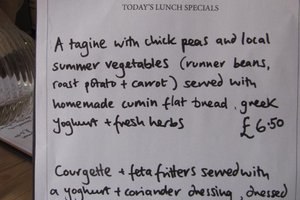 TODAY'S LUNCH SPECIALS
A tagine with chick peas and local
summer vegetables (runner beans,
roast potato + carrot) served with
homemade cumin flat bread, greek
yoghurt + fresh herbs £6.50
Courgette + feta fritters served with
a yoghurt + coriander dressing, dressed